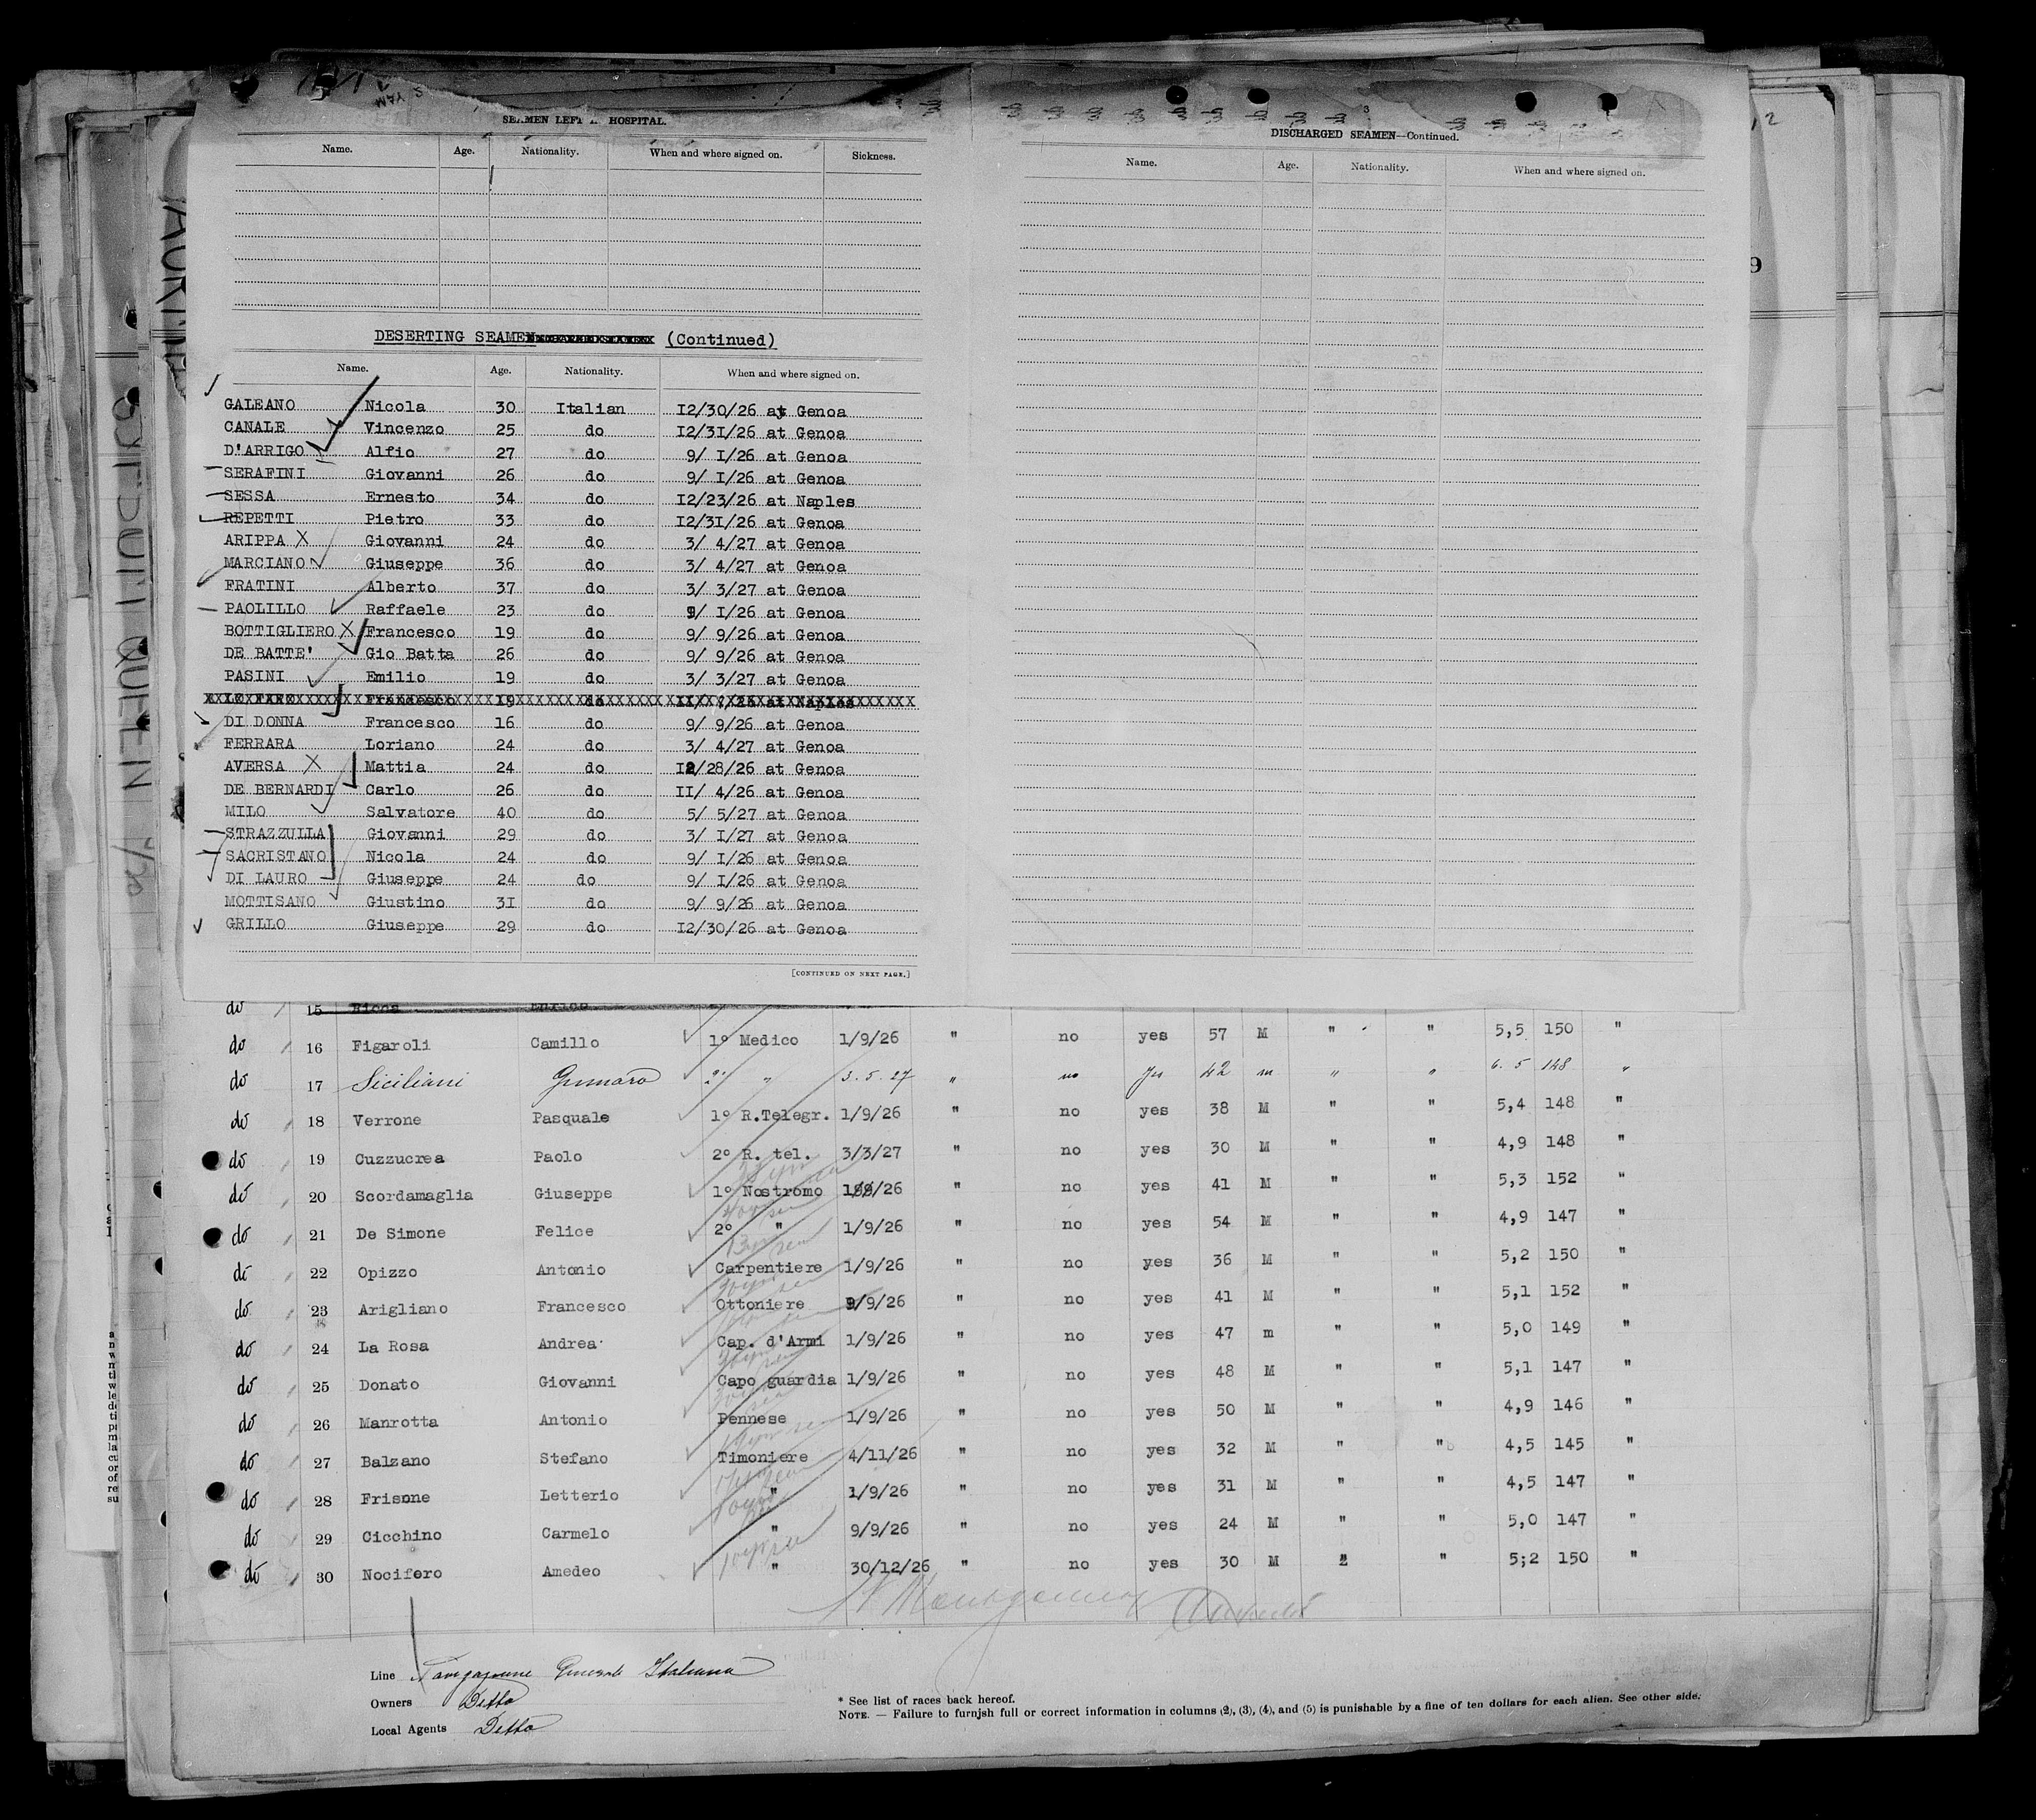 SEAMEN LEFT HOSPITAL.
Name. Age. Nationality. When and where signed on. Sickness.
DESERTING SEAMEN (Continued)
Name. Age. Nationality. When and where signed on.
GALEANO Nicola 30 Italian I2/30/26 at Genoa
CANALE Vincenzo 25 do I2/3I/26 at Genoa
D'ARRIGO Alfio 27 do 9/ I/26 at Genoa
SERAFINI Giovanni 26 do 9/ I/26 at Genoa
SESSA Ernesto 34 do I2/23/26 at Naples
REPETTI Pietro 33 do I2/3I/26 at Genoa
ARIPPA X Giovanni 24 do 3/ 4/27 at Genoa
MARCIANO Giuseppe 36 do 3/ 4/27 at Genoa
FRATINI Alberto 37 do 3/ 3/27 at Genoa
PAOLILLO Raffaele 23 do 9/ I/26 at Genoa
BOTTIGLIERO X Francesco 19 do 9/ 9/26 at Genoa
DE BATTE' Gio Batta 26 do 9/ 9/26 at Genoa
PASINI Emilio 19 do 3/ 3/27 at Genoa
Francesco 19 do at Naples
DI DONNA Francesco 16 do 9/ 9/26 at Genoa
FERRARA Loriano 24 do 3/ 4/27 at Genoa
AVERSA X Mattia 24 do I2/28/26 at Genoa
DE BERNARDI Carlo 26 do II/ 4/26 at Genoa
MILO Salvatore 40 do 5/ 5/27 at Genoa
STRAZZULLA Giovanni 29 do 3/ I/27 at Genoa
SACRISTANO Nicola 24 do 9/ I/26 at Genoa
DI LAURO Giuseppe 24 do 9/ I/26 at Genoa
MOTTISANO Giustino 3I do 9/ 9/26 at Genoa
GRILLO Giuseppe 29 do I2/30/26 at Genoa
[CONTINUED ON NEXT PAGE.]
3
DISCHARGED SEAMEN—Continued.
Name. Age. Nationality. When and where signed on.
do 15
do 16 Figaroli Camillo 1º Medico 1/9/26 " no yes 57 M " " 5,5 150 "
do 17 Siciliani Gennaro 2º " 3.5.27 " no yes 42 m " " 6.5 148 "
do 18 Verrone Pasquale 1º R.Telegr. 1/9/26 " no yes 38 M " " 5,4 148 "
do 19 Cuzzucrea Paolo 2º R. tel. 3/3/27 " no yes 30 M " " 4,9 148 "
do 20 Scordamaglia Giuseppe 1º Nostromo /26 " no yes 41 M " " 5,3 152 "
do 21 De Simone Felice 2º " 1/9/26 " no yes 54 M " " 4,9 147 "
do 22 Opizzo Antonio Carpentiere 1/9/26 " no yes 36 M " " 5,2 150 "
do 23 Arigliano Francesco Ottoniere 9/9/26 " no yes 41 M " " 5,1 152 "
do 24 La Rosa Andrea Cap. d'Armi 1/9/26 " no yes 47 m " " 5,0 149 "
do 25 Donato Giovanni Capo guardia 1/9/26 " no yes 48 M " " 5,1 147 "
do 26 Manrotta Antonio Pennese 1/9/26 " no yes 50 M " " 4,9 146 "
do 27 Balzano Stefano Timoniere 4/11/26 " no yes 32 M " " 4,5 145 "
do 28 Frisone Letterio " 1/9/26 " no yes 31 M " " 4,5 147 "
do 29 Cicchino Carmelo " 9/9/26 " no yes 24 M " " 5,0 147 "
do 30 Nocifero Amedeo " 30/12/26 " no yes 30 M " " 5;2 150 "
Line Navigazione Generale Italiana
Owners Ditto
Local Agents Ditto
* See list of races back hereof.
NOTE. — Failure to furnish full or correct information in columns (2), (3), (4), and (5) is punishable by a fine of ten dollars for each alien. See other side.